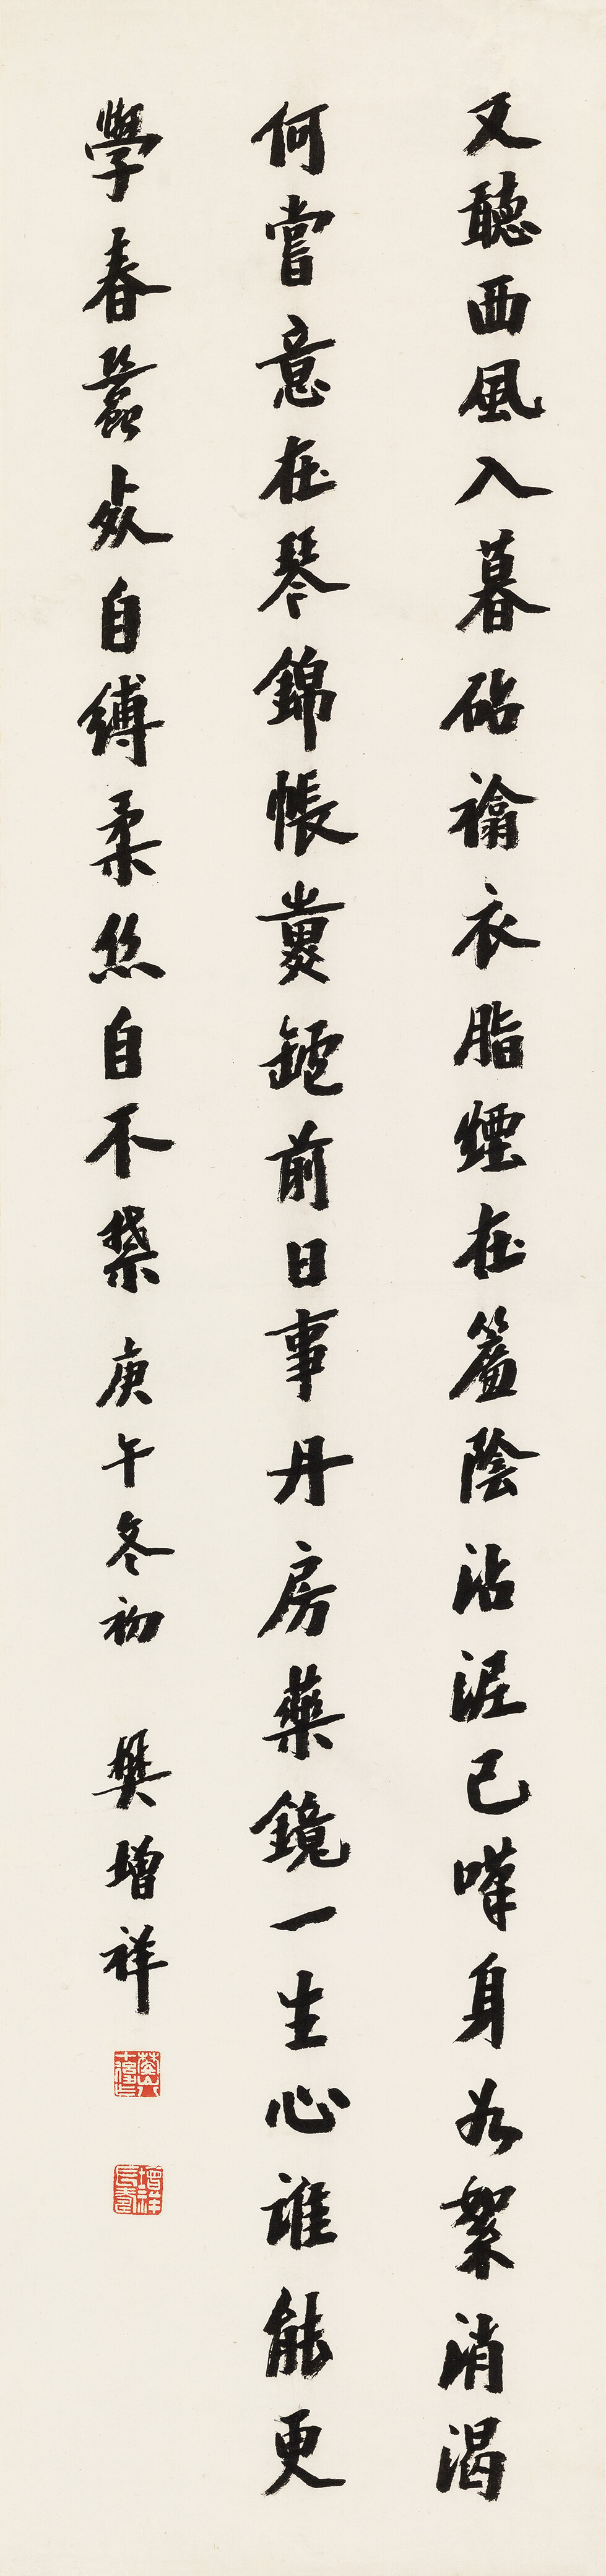 又聽西風入暮砧襘衣脂煙在簷陰沾泥已嘆身如絮消渴
何嘗意在琴錦帳爇鑪前日事丹房藥鏡一生心誰能更
學春蠶死自縛柔絲自不禁 庚午冬初 樊增祥